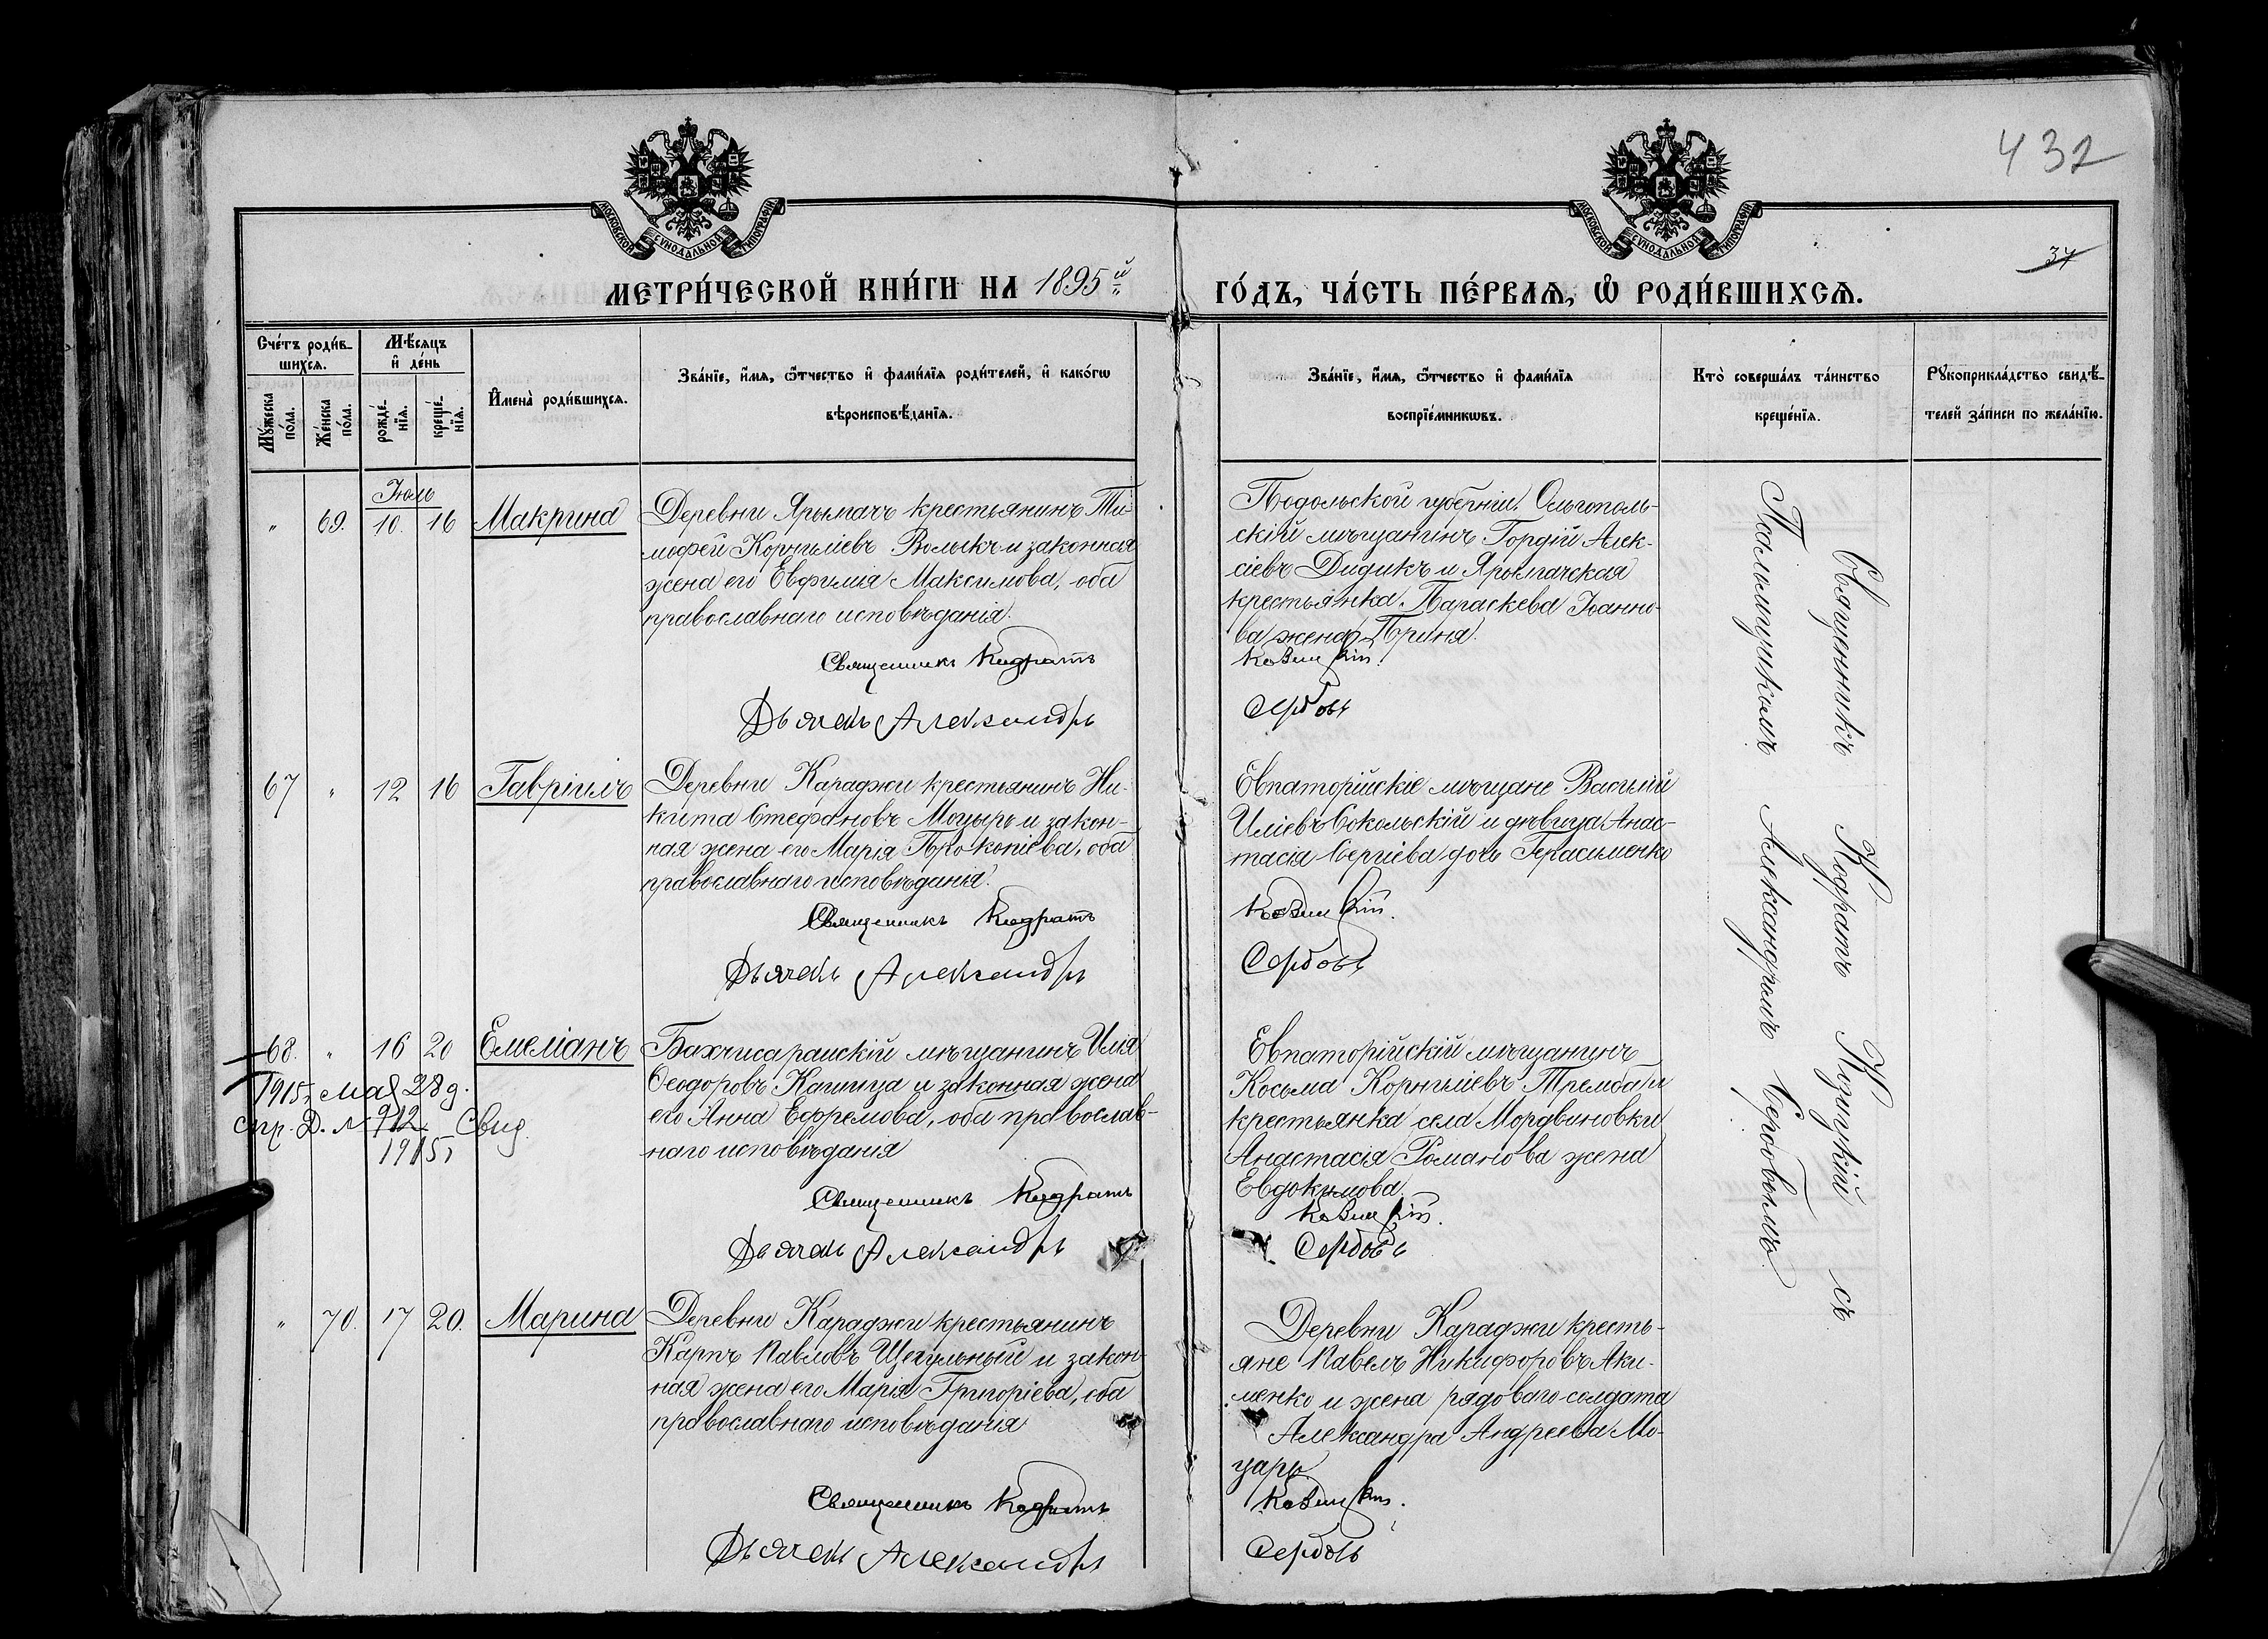 432
37
МОСКОВСКОЙ СѴНОДАЛЬНОЙ ТИПОГРАФІИ
МОСКОВСКОЙ СѴНОДАЛЬНОЙ ТИПОГРАФІИ
МЕТРИ́ЧЕСКОЙ КНИ́ГИ НА 1895й
ГО́ДЪ, ЧА́СТЬ ПЕ́РВАѦ, Ѽ РОДИ́ВШИХСѦ.
Сче́тъ роди́в-
шихсѧ.
Мꙋ́жеска по́ла.
Же́нска по́ла.
Мѣ́сѧцъ
и҆ де́нь
рожде́-
нїѧ.
креще́-
нїѧ.
И҆мена̀ роди́вшихсѧ.
Зва́нїе, и҆́мѧ, ѻ҆́тчество и҆ фами́лїѧ роди́телей, и҆ како́гѡ
вѣроисповѣ́данїѧ.
Зва́нїе, и҆́мѧ, ѻ҆́тчество и҆ фами́лїѧ
воспрїе́мникѡвъ.
Кто̀ соверша́лъ та́инство
креще́нїѧ.
Рꙋкоприкла́дство свидѣ́-
телей за́писи по жела́нїю.
Іюль
" 69. 10. 16 Макрина
Деревни Ярылгачъ крестьянинъ Ти-
мофей Корниліевъ Волыкъ и законная
жена его Евфимія Максимова, оба
православнаго исповѣданія.
Священникъ Кодратъ
Дьячекъ Александръ
Подольской губерніи, Ольгополь-
скій мѣщанинъ Гордій Алек-
сіевъ Дидикъ и Ярылгачская
крестьянка, Параскева Іоанно-
ва жена Приня.
Сербовъ
67 " 12 16 Гавріилъ
Деревни Караджи крестьянинъ Ни-
кита Стефановъ Моцырь и закон-
ная жена его Марія Прокопіева, оба
православнаго исповѣданія.
Священникъ Кодратъ
Дьячекъ Александръ
Евпаторійскіе мѣщане Василій
Иліевъ Сокольскій и дѣвица Анас-
тасія Сергіева дочь Герасименко
Сербовъ
68. " 16 20 Емеліанъ
1915г. мая 28 д.
спр. Д. № 912 Свид.
1915г
Бахчисарайскій мѣщанинъ Илія
Ѳеодоровъ Кашица и законная жена
его Анна Ефремова, оба православ-
наго исповѣданія
Священникъ Кодратъ
Дьячекъ Александръ
Евпаторійскій мѣщанинъ
Косьма Корниліевъ Трембач и
крестьянка села Мордвиновки
Анастасія Романова жена
Евдокимова.
Сербовъ
" 70. 17 20. Марина
Деревни Караджи крестьянинъ
Карпъ Павловъ Щегульный и закон-
ная жена его Марія Григоріева, оба
православнаго исповѣданія
Священникъ Кодратъ
Дьячекъ Александръ
Деревни Караджи кресть-
яне Павелъ Никифоровъ Аки-
менко и жена рядоваго солдата
Александра Андреева Мо-
царь.
Сербовъ
Священникъ Кодратъ Козицкій съ
Псаломщикомъ Александромъ Сербовымъ.